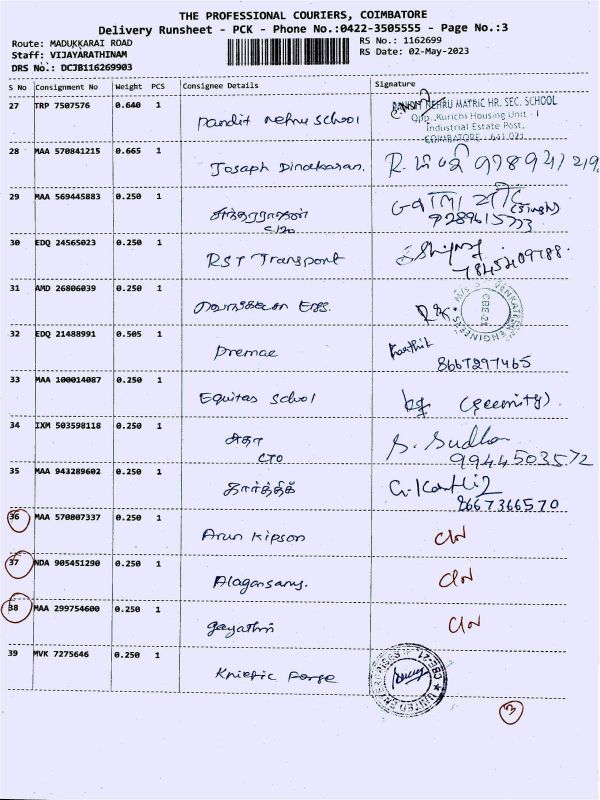 THE PROFESSIONAL COURIERS, COIMBATORE
Delivery Runsheet - PCK - Phone No.:0422-3505555 - Page No.:3
Route: MADUKKARAI ROAD RS No.: 1162699
Staff: VIJAYARATHINAM RS Date: 02-May-2023
DRS No.: DCJB116269903
S No Consignment No Weight PCS Consignee Details Signature
27 TRP 7507576 0.640 1 Pandit Nehru School
PANDIT NEHRU MATRIC HR. SEC. SCHOOL
Opp. Kurichi Housing Unit - I
Industrial Estate Post,
COIMBATORE - 641 021
28 MAA 570841215 0.665 1 Joseph Dinakaran.
29 MAA 569445883 0.250 1 (Singh)
9289615773
30 EDQ 24565023 0.250 1 RST Transport
31 AMD 26806039 0.250 1 RK.
M/S VENKATESWARA ENGINEERS CBE-21
32 EDQ 21488991 0.505 1 Premae Karthik
8667297465
33 MAA 100014087 0.250 1 Equitas School
34 IXM 503598118 0.250 1 சுதா S. Sudha
CTO 9944503572
35 MAA 943289602 0.250 1 கார்த்திக்
8667366570
36 MAA 570807337 0.250 1 Arun Kipson C/N
37 NDA 905451290 0.250 1 Alagarsamy. C/N
38 MAA 299754600 0.250 1 Gayathri C/N
39 MVK 7275646 0.250 1 Kniefic Forge
UNITED ENTERPRISES CBE-21
3